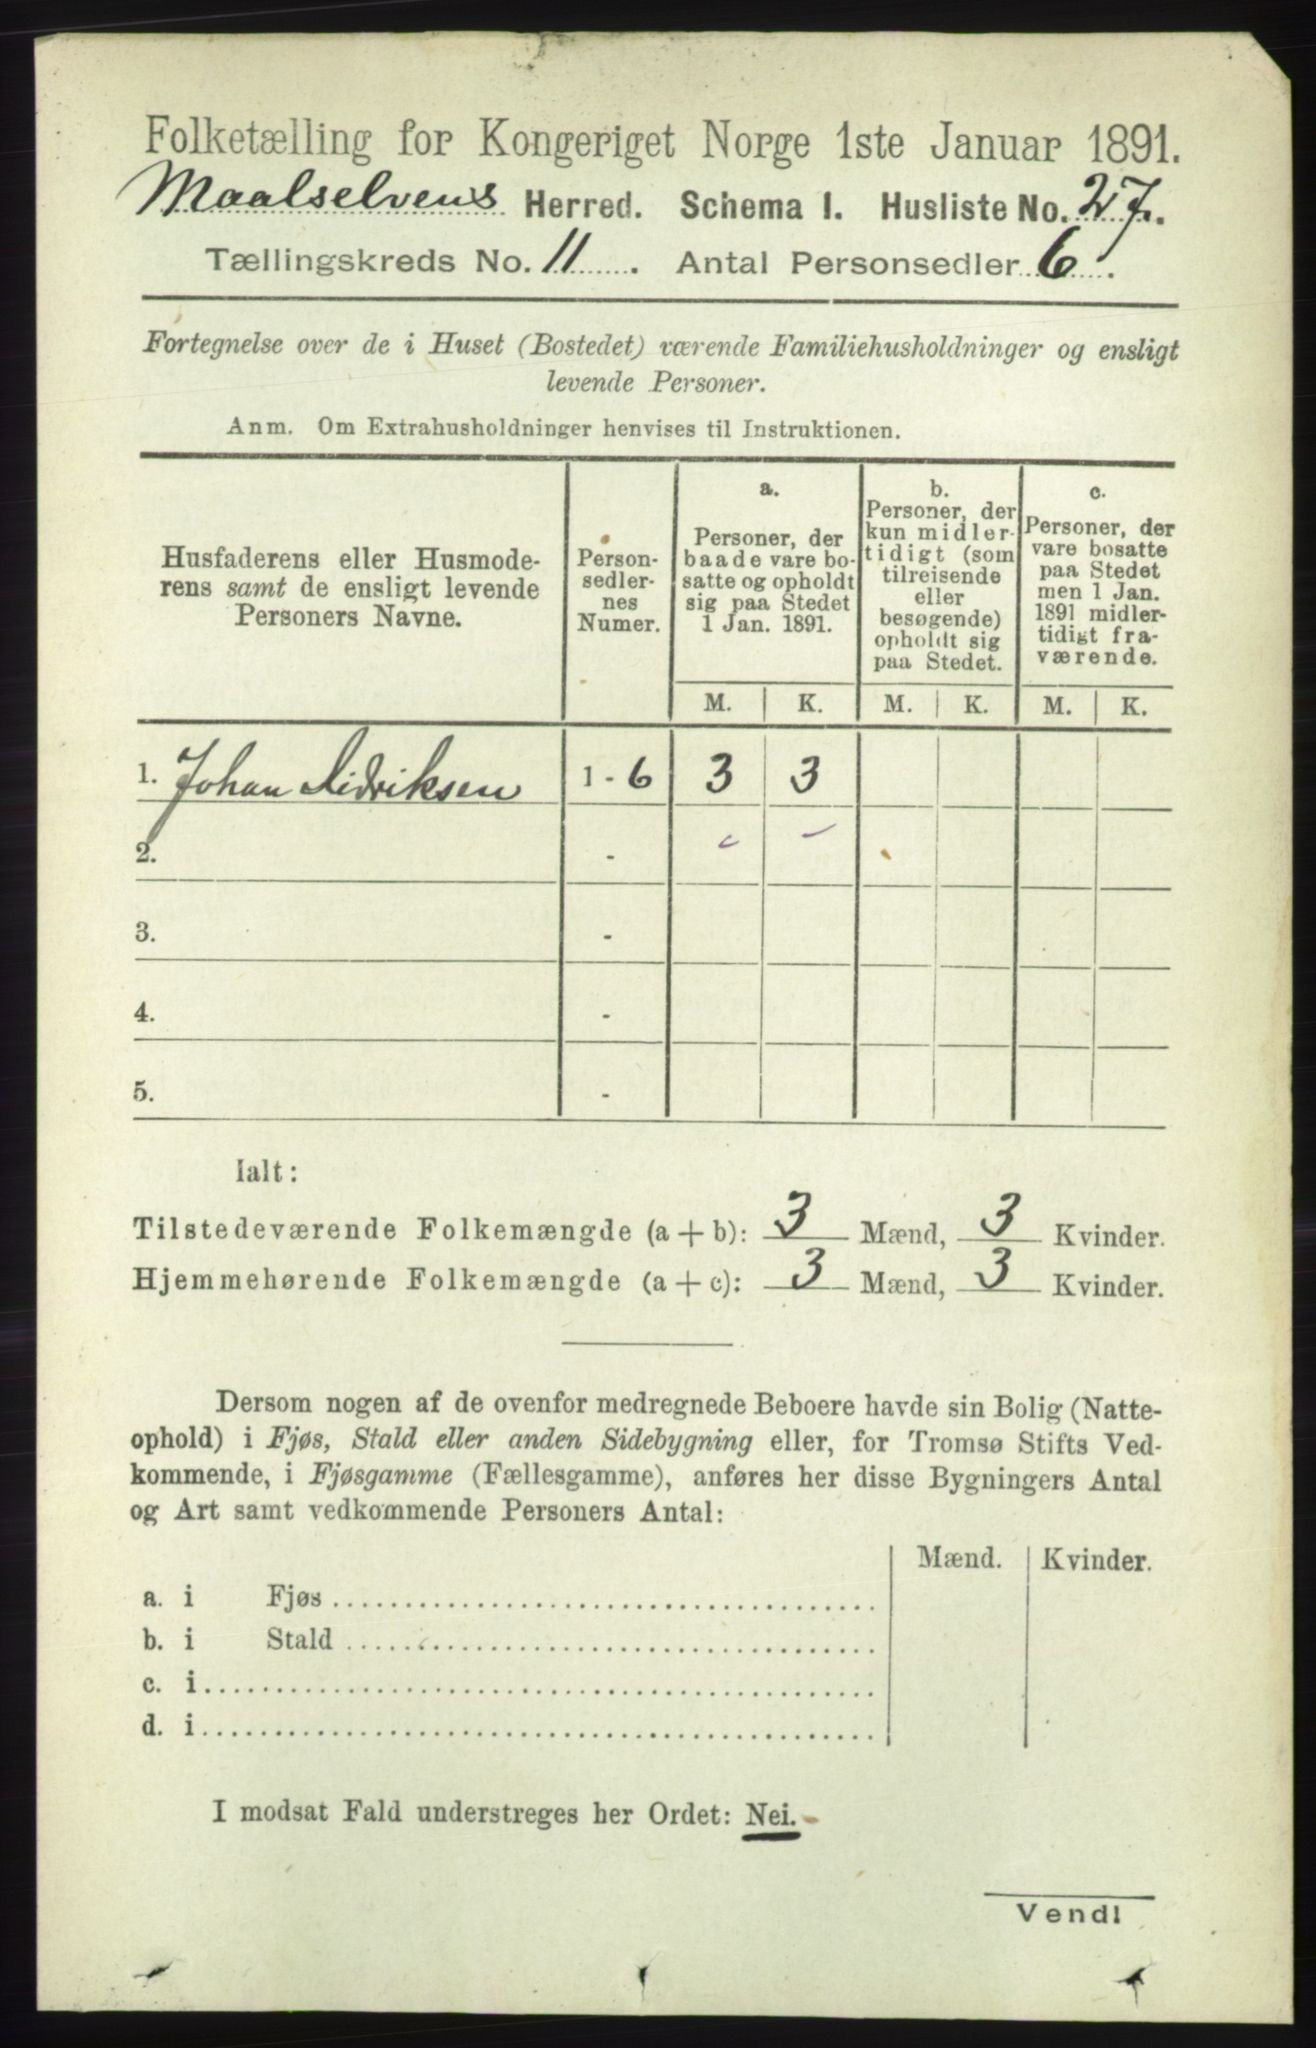 Folketælling for Kongeriget Norge 1ste Januar 1891.
Maalselvens Herred. Schema I. Husliste No. 27.
Tællingskreds No. 11. Antal Personsedler 6.
Fortegnelse over de i Huset (Bostedet) værende Familiehusholdninger og ensligt
levende Personer.
Anm. Om Extrahusholdninger henvises til Instruktionen.
Husfaderens eller Husmode-
rens samt de ensligt levende
Personers Navne.
Person-
sedler-
nes
Numer.
a.
Personer, der
baade vare bo-
satte og opholdt
sig paa Stedet
1 Jan. 1891.
b.
Personer, der
kun midler-
tidigt (som
tilreisende
eller
besøgende)
opholdt sig
paa Stedet.
c.
Personer, der
vare bosatte
paa Stedet
men 1 Jan.
1891 midler-
tidigt fra-
værende.
M. K. M. K. M. K.
1. Johan Didriksen 1 - 6 3 3
2. -
3. -
4. -
5. -
Ialt:
Tilstedeværende Folkemængde (a + b): 3 Mænd, 3 Kvinder.
Hjemmehørende Folkemængde (a + c): 3 Mænd, 3 Kvinder.
Dersom nogen af de ovenfor medregnede Beboere havde sin Bolig (Natte-
ophold) i Fjøs, Stald eller anden Sidebygning eller, for Tromsø Stifts Ved-
kommende, i Fjøsgamme (Fællesgamme), anføres her disse Bygningers Antal
og Art samt vedkommende Personers Antal:
Mænd. Kvinder.
a. i Fjøs
b. i Stald
c. i
d. i
I modsat Fald understreges her Ordet: Nei.
Vend!